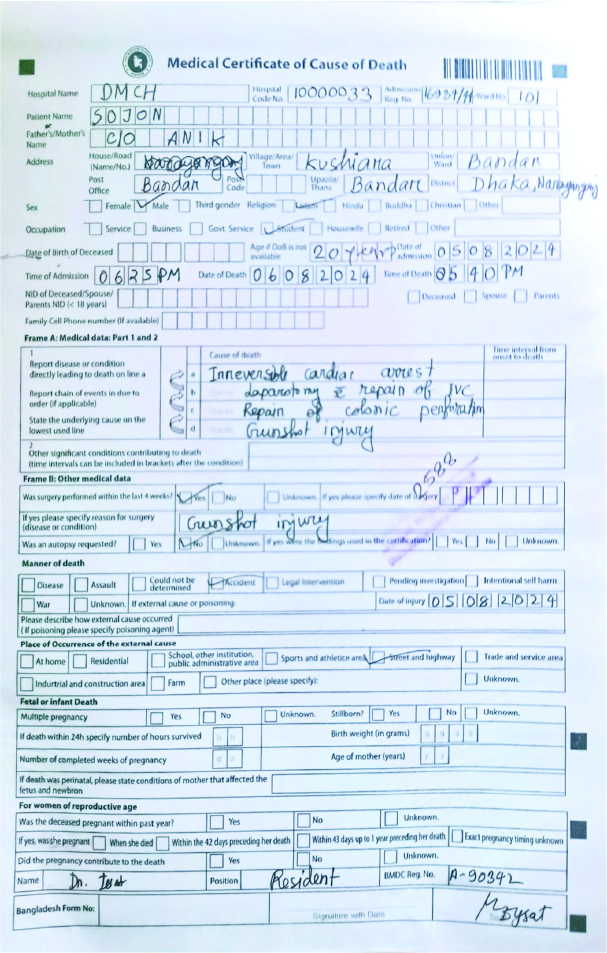 Medical Certificate of Cause of Death
Hospital Name DMCH Hospital Code No. 10000033 Admission Reg. No. Ward No. 101
Patient Name SOJON
Father's/Mother's Name C/O ANIK
Address House/Road (Name/No.) Village/Area/Town Kushiana Union/Ward Bandar
Post Office Bandar Post Code Upazila/Thana Bandar District Dhaka, Narayangonj
Sex Female Male Third gender Religion Islam Hindu Buddha Christian Other
Occupation Service Business Govt Service Student Housewife Retired Other
Date of Birth of Deceased Age if DoB is not available 20 years Date of admission 05082024
Time of Admission 0625 PM Date of Death 06082024 Time of Death 0540 PM
NID of Deceased/Spouse/Parents NID (< 18 years) Deceased Spouse Parents
Family Cell Phone number (If available)
Frame A: Medical data: Part 1 and 2
1 Cause of death Time interval from onset to death
Report disease or condition directly leading to death on line a a Irreversible cardiac arrest
Report chain of events in due to order (if applicable) b Laparotomy c̄ repair of IVC
c Repair of colonic perforation
State the underlying cause on the lowest used line d Gunshot injury
2
Other significant conditions contributing to death (time intervals can be included in brackets after the condition)
Frame B: Other medical data
2588
Was surgery performed within the last 4 weeks? Yes No Unknown. If yes please specify date of surgery
If yes please specify reason for surgery (disease or condition) Gunshot injury
Was an autopsy requested? Yes No Unknown. If yes were the findings used in the certification? Yes No Unknown.
Manner of death
Disease Assault Could not be determined Accident Legal Intervention Pending investigation Intentional self harm
War Unknown. If external cause or poisoning: Date of injury 05082024
Please describe how external cause occurred (If poisoning please specify poisoning agent)
Place of Occurrence of the external cause
At home Residential School, other institution, public administrative area Sports and athletice area Street and highway Trade and service area
Indurtrial and construction area Farm Other place (please specify): Unknown.
Fetal or infant Death
Multiple pregnancy Yes No Unknown. Stillborn? Yes No Unknown.
If death within 24h specify number of hours survived h h Birth weight (in grams) g g g g
Number of completed weeks of pregnancy Age of mother (years) y y
If death was perinatal, please state conditions of mother that affected the fetus and newbron
For women of reproductive age
Was the deceased pregnant within past year? Yes No Unknown.
If yes, was she pregnant When she died Within the 42 days preceding her death Within 43 days up to 1 year preceding her death Exact pregnancy timing unknown
Did the pregnancy contribute to the death Yes No Unknown.
Name Dr. Position Resident BMDC Reg. No. A-90342
Bangladesh Form No: Signature with Date